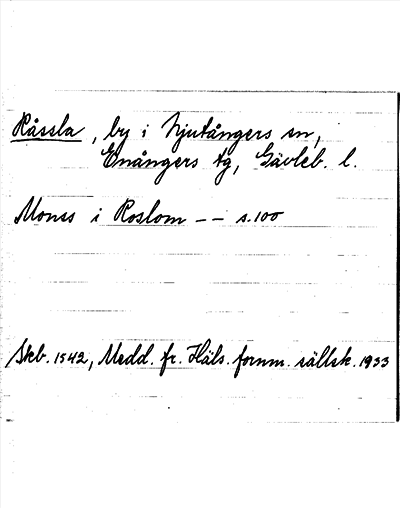 Råssla, by i Njutångers sn,
Enångers tg, Gävleb. l.
Monss i Roslom -- s.100
Skb. 1542, Medd. fr. Häls. fornm. sällsk. 1933